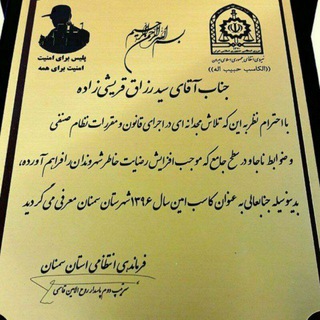 بسم الله الرحمن الرحیم
پلیس برای امنیت
امنیت برای همه
نیروی انتظامی جمهوری اسلامی ایران
((الکاسب حبیب اله))
جناب آقای سید رزاق قریشی زاده
با احترام نظر به این که تلاش مجدانه ای در اجرای قانون و مقررات نظام صنفی
و ضوابط ناجا و در سطح جامعه که موجب افزایش رضایت خاطر شهروندان را فراهم آورده،
بدینوسیله جنابعالی به عنوان کاسب امین سال ۱۳۹۶ شهرستان سمنان معرفی می گردید
فرماندهی انتظامی استان سمنان
سرتیپ دوم پاسدار روح الامین قاسمی